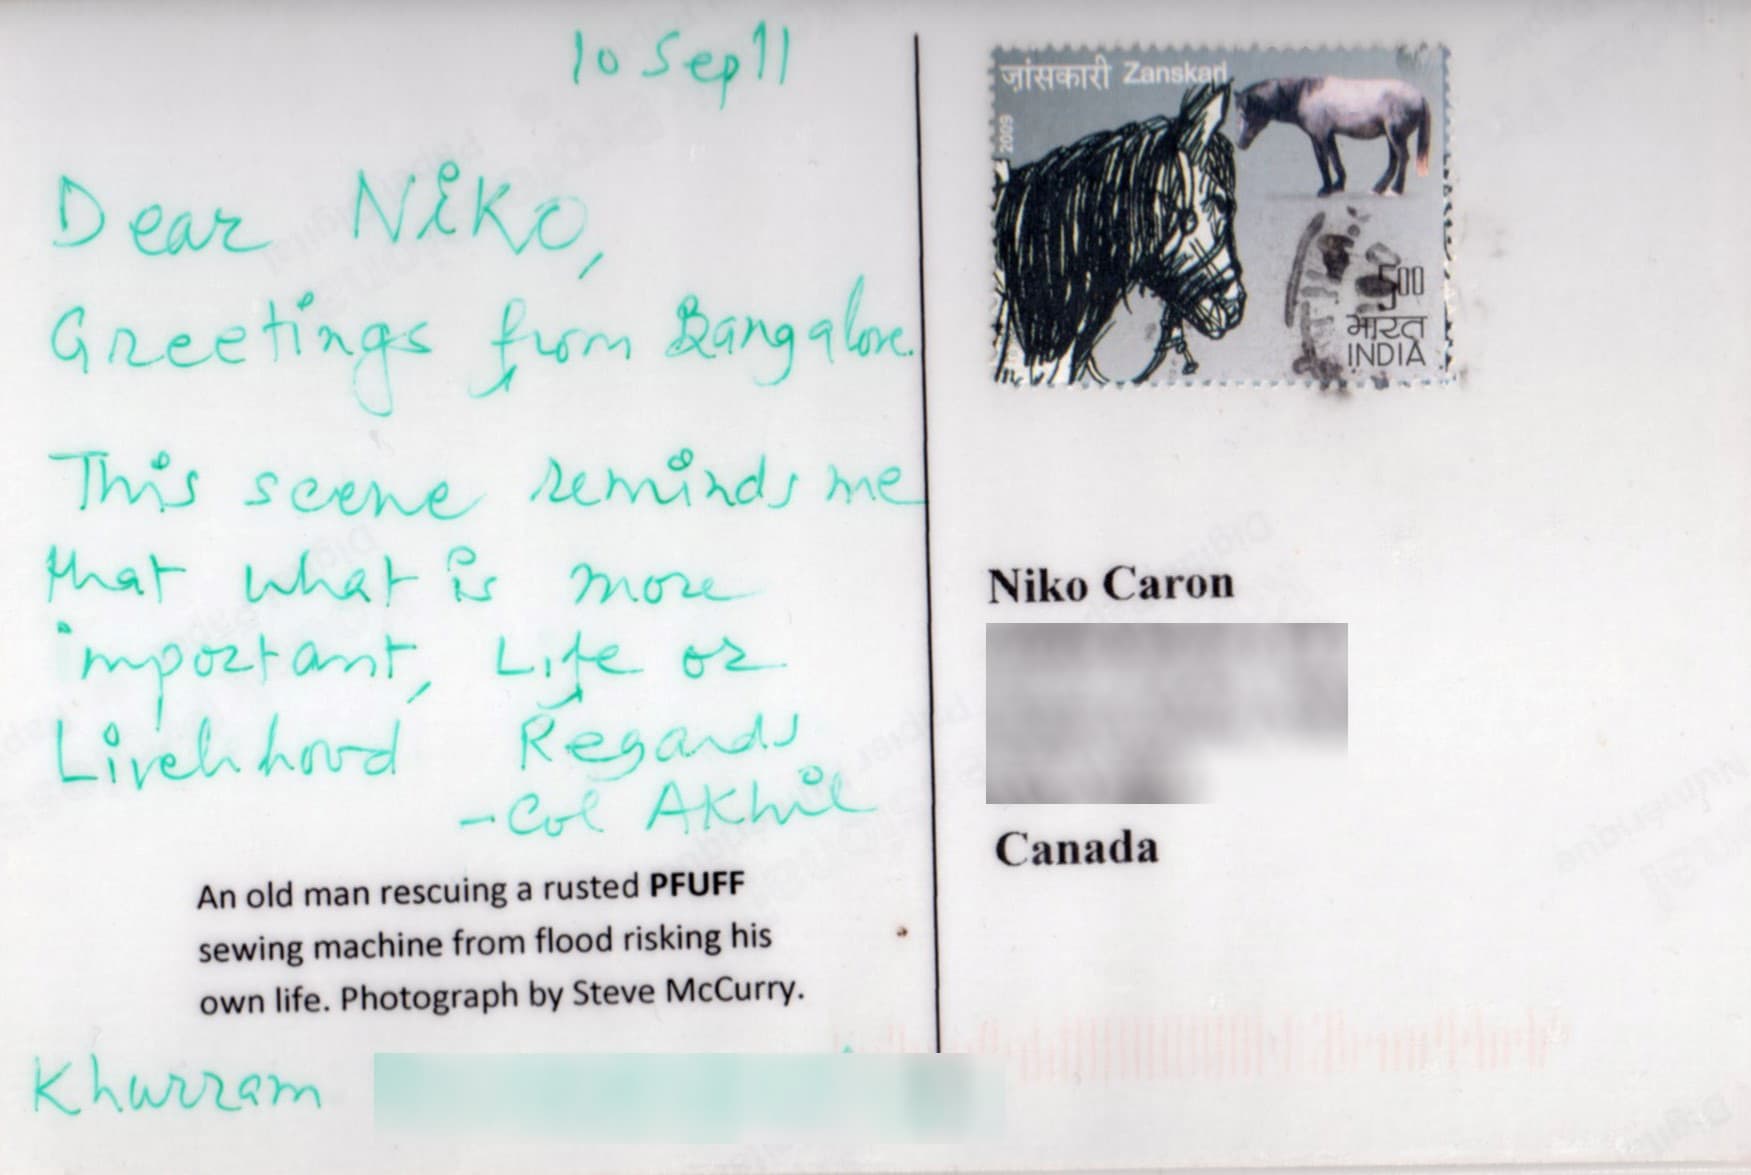 10 Sep 11
Dear Niko,
Greetings from Bangalore.
This scene reminds me
that what is more
important, Life or
Livelihood Regards
- Col Akhil
An old man rescuing a rusted PFUFF
sewing machine from flood risking his
own life. Photograph by Steve McCurry.
Khurram
ज़ांसकारी Zanskari
2009
500
भारत
INDIA
Niko Caron
Canada